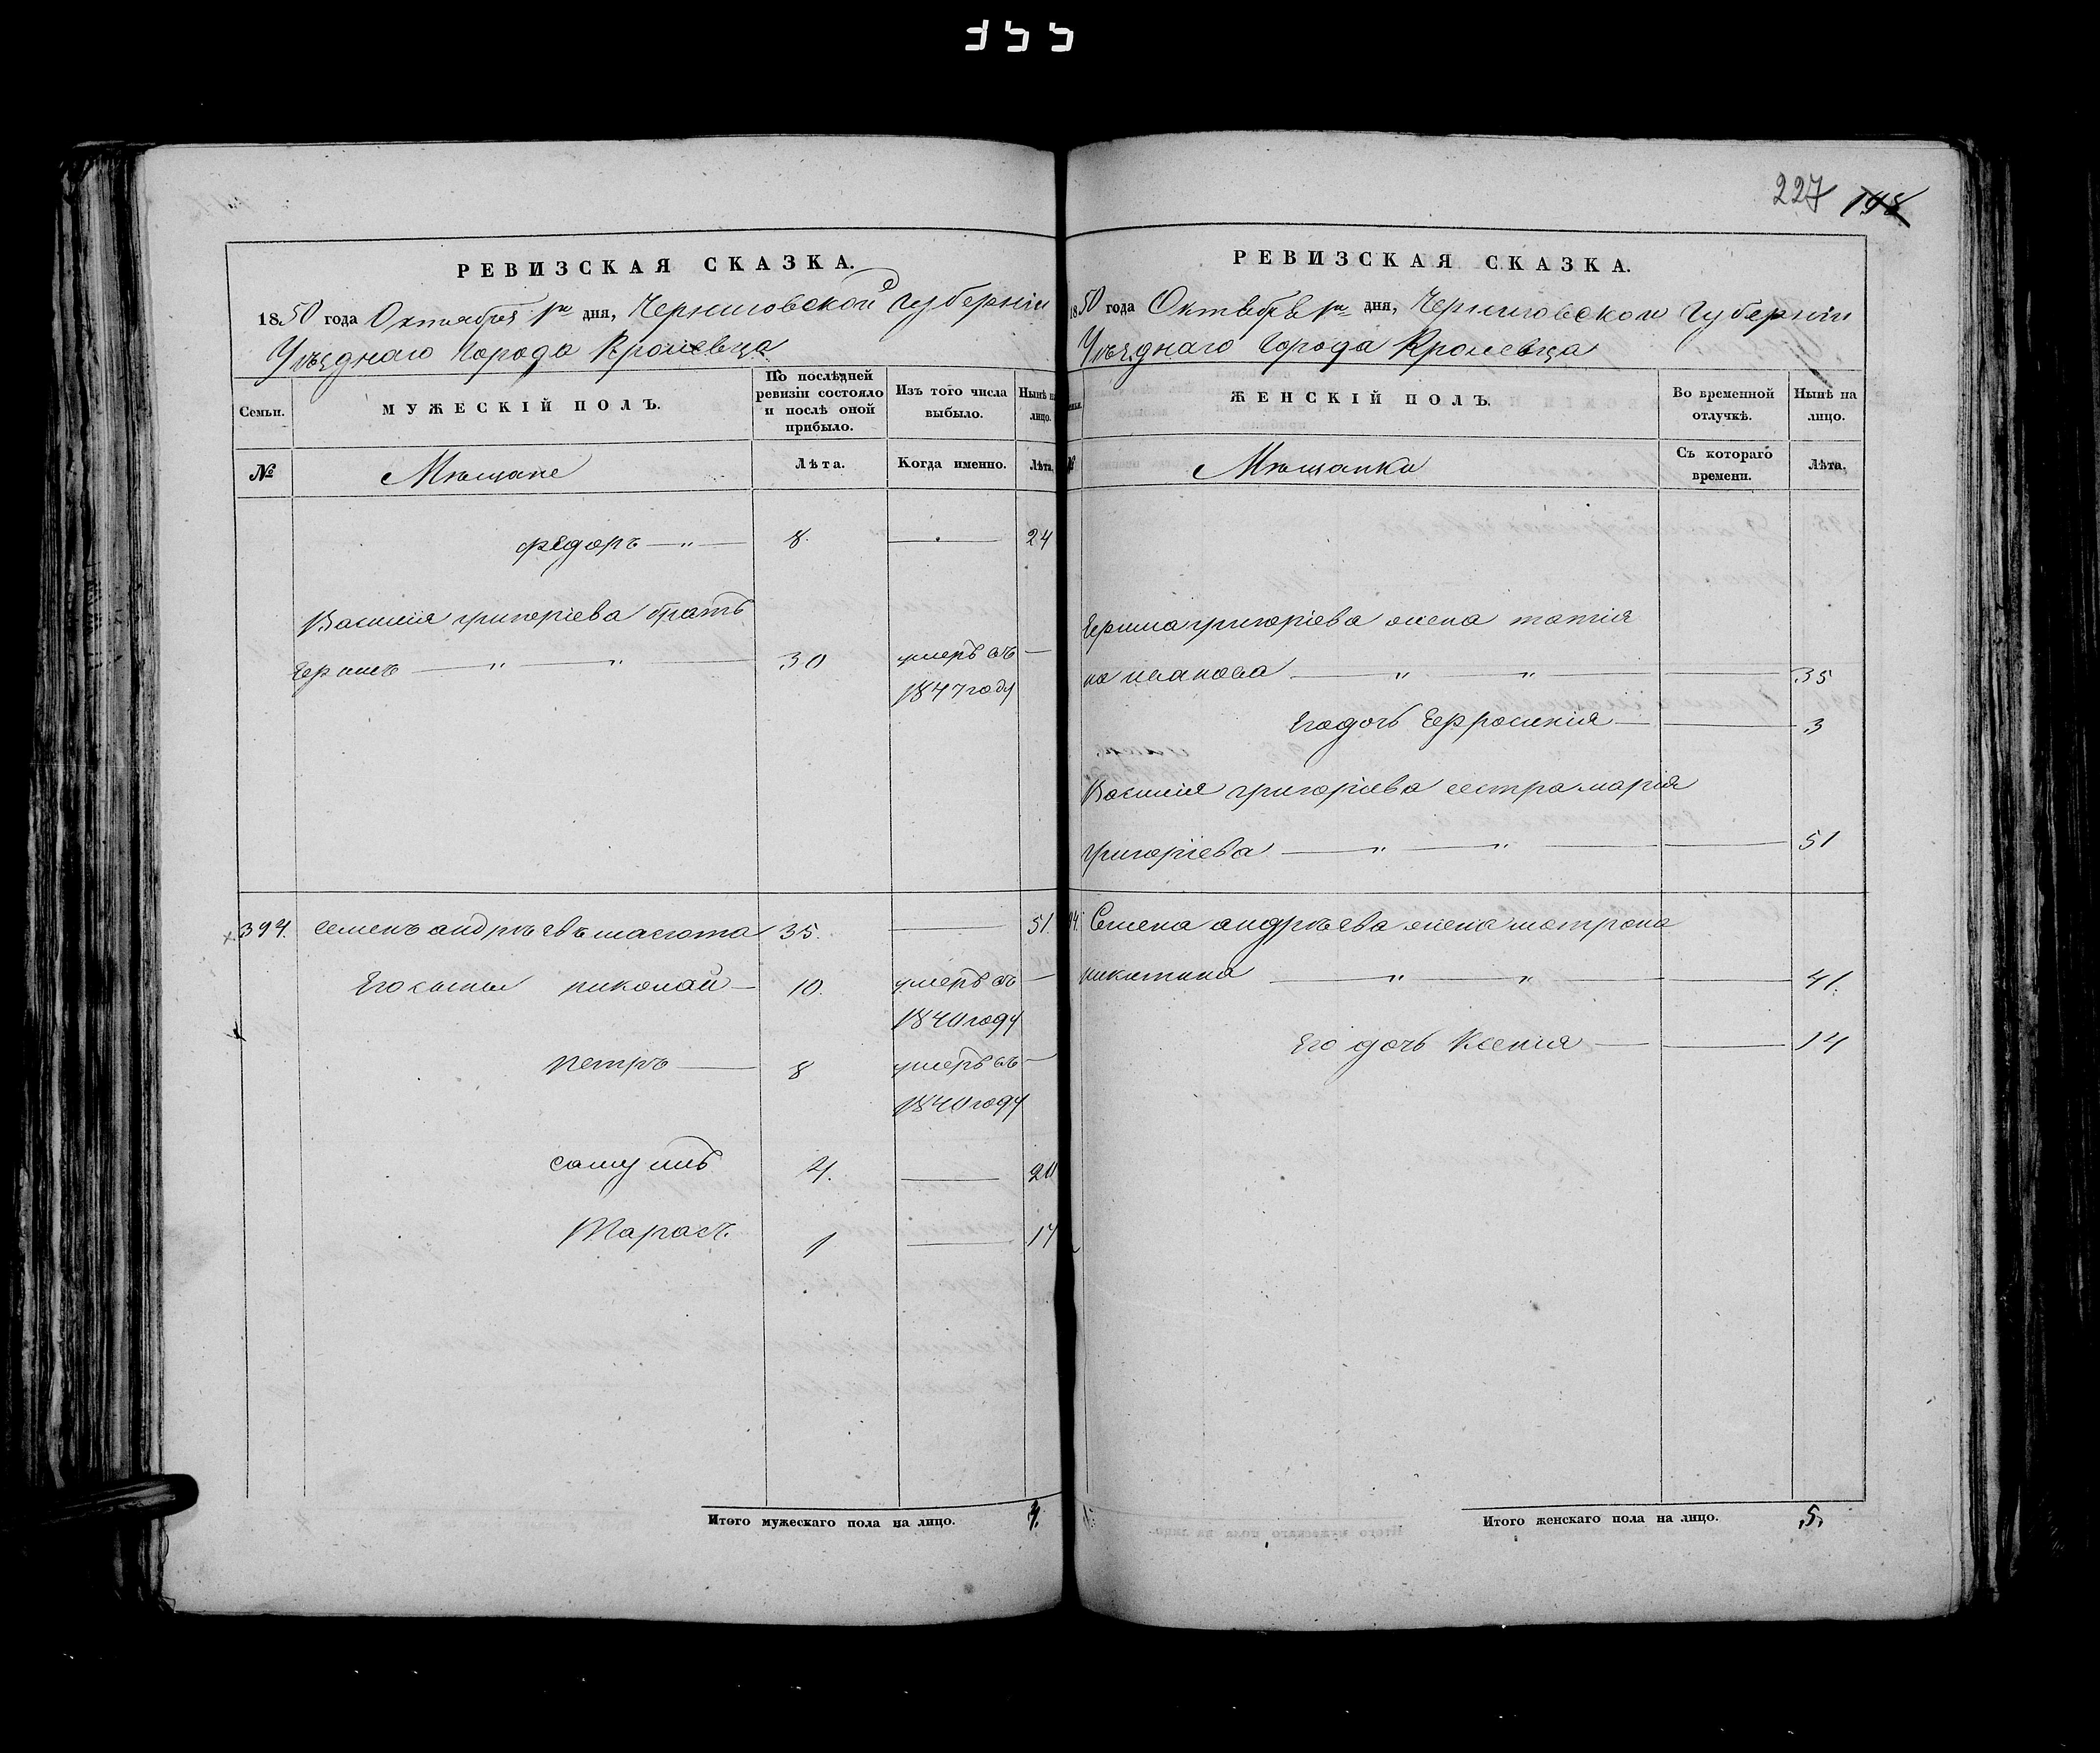 227 198
РЕВИЗСКАЯ СКАЗКА.
1850 года Октября 1го дня, Черниговской Губерніи
Уѣзднаго Города Кролевца
Семьи.
МУЖЕСКІЙ ПОЛЪ.
По послѣдней ревизіи состояло и послѣ оной прибыло.
Изъ того числа выбыло.
Нынѣ на лицо.
№
Мѣщане
Лѣта.
Когда именно.
Лѣта.
федоръ — " — 8. — 24
Василія григоріева братъ
— " — " — 30 умеръ въ —
1847 году
394. семенъ андрѣевъ 35. — 51.
Его сыны николай — 10. умеръ въ —
1840 году
петръ — 8 умеръ въ —
1840 году
самуилъ 4. — 20
Тарасъ. 1 — 17
Итого мужескаго пола на лицо. 4.
РЕВИЗСКАЯ СКАЗКА.
1850 года Октября 1го дня, Черниговской Губерніи
Уѣзднаго Города Кролевца
ЖЕНСКІЙ ПОЛЪ.
Во временной отлучкѣ.
Нынѣ на лицо.
№
Мѣщанки
Съ котораго времени.
Лѣта.
григоріева жена татія
на иванова — " — " — 35
Его дочь Ефросинія — 3
Василія григоріева сестра марія
григоріева — " — " — 51
94. Семена андрѣева жена матрона
никитина — " — " — 41.
Его дочь Ксенія — 14
Итого женскаго пола на лицо. 5.